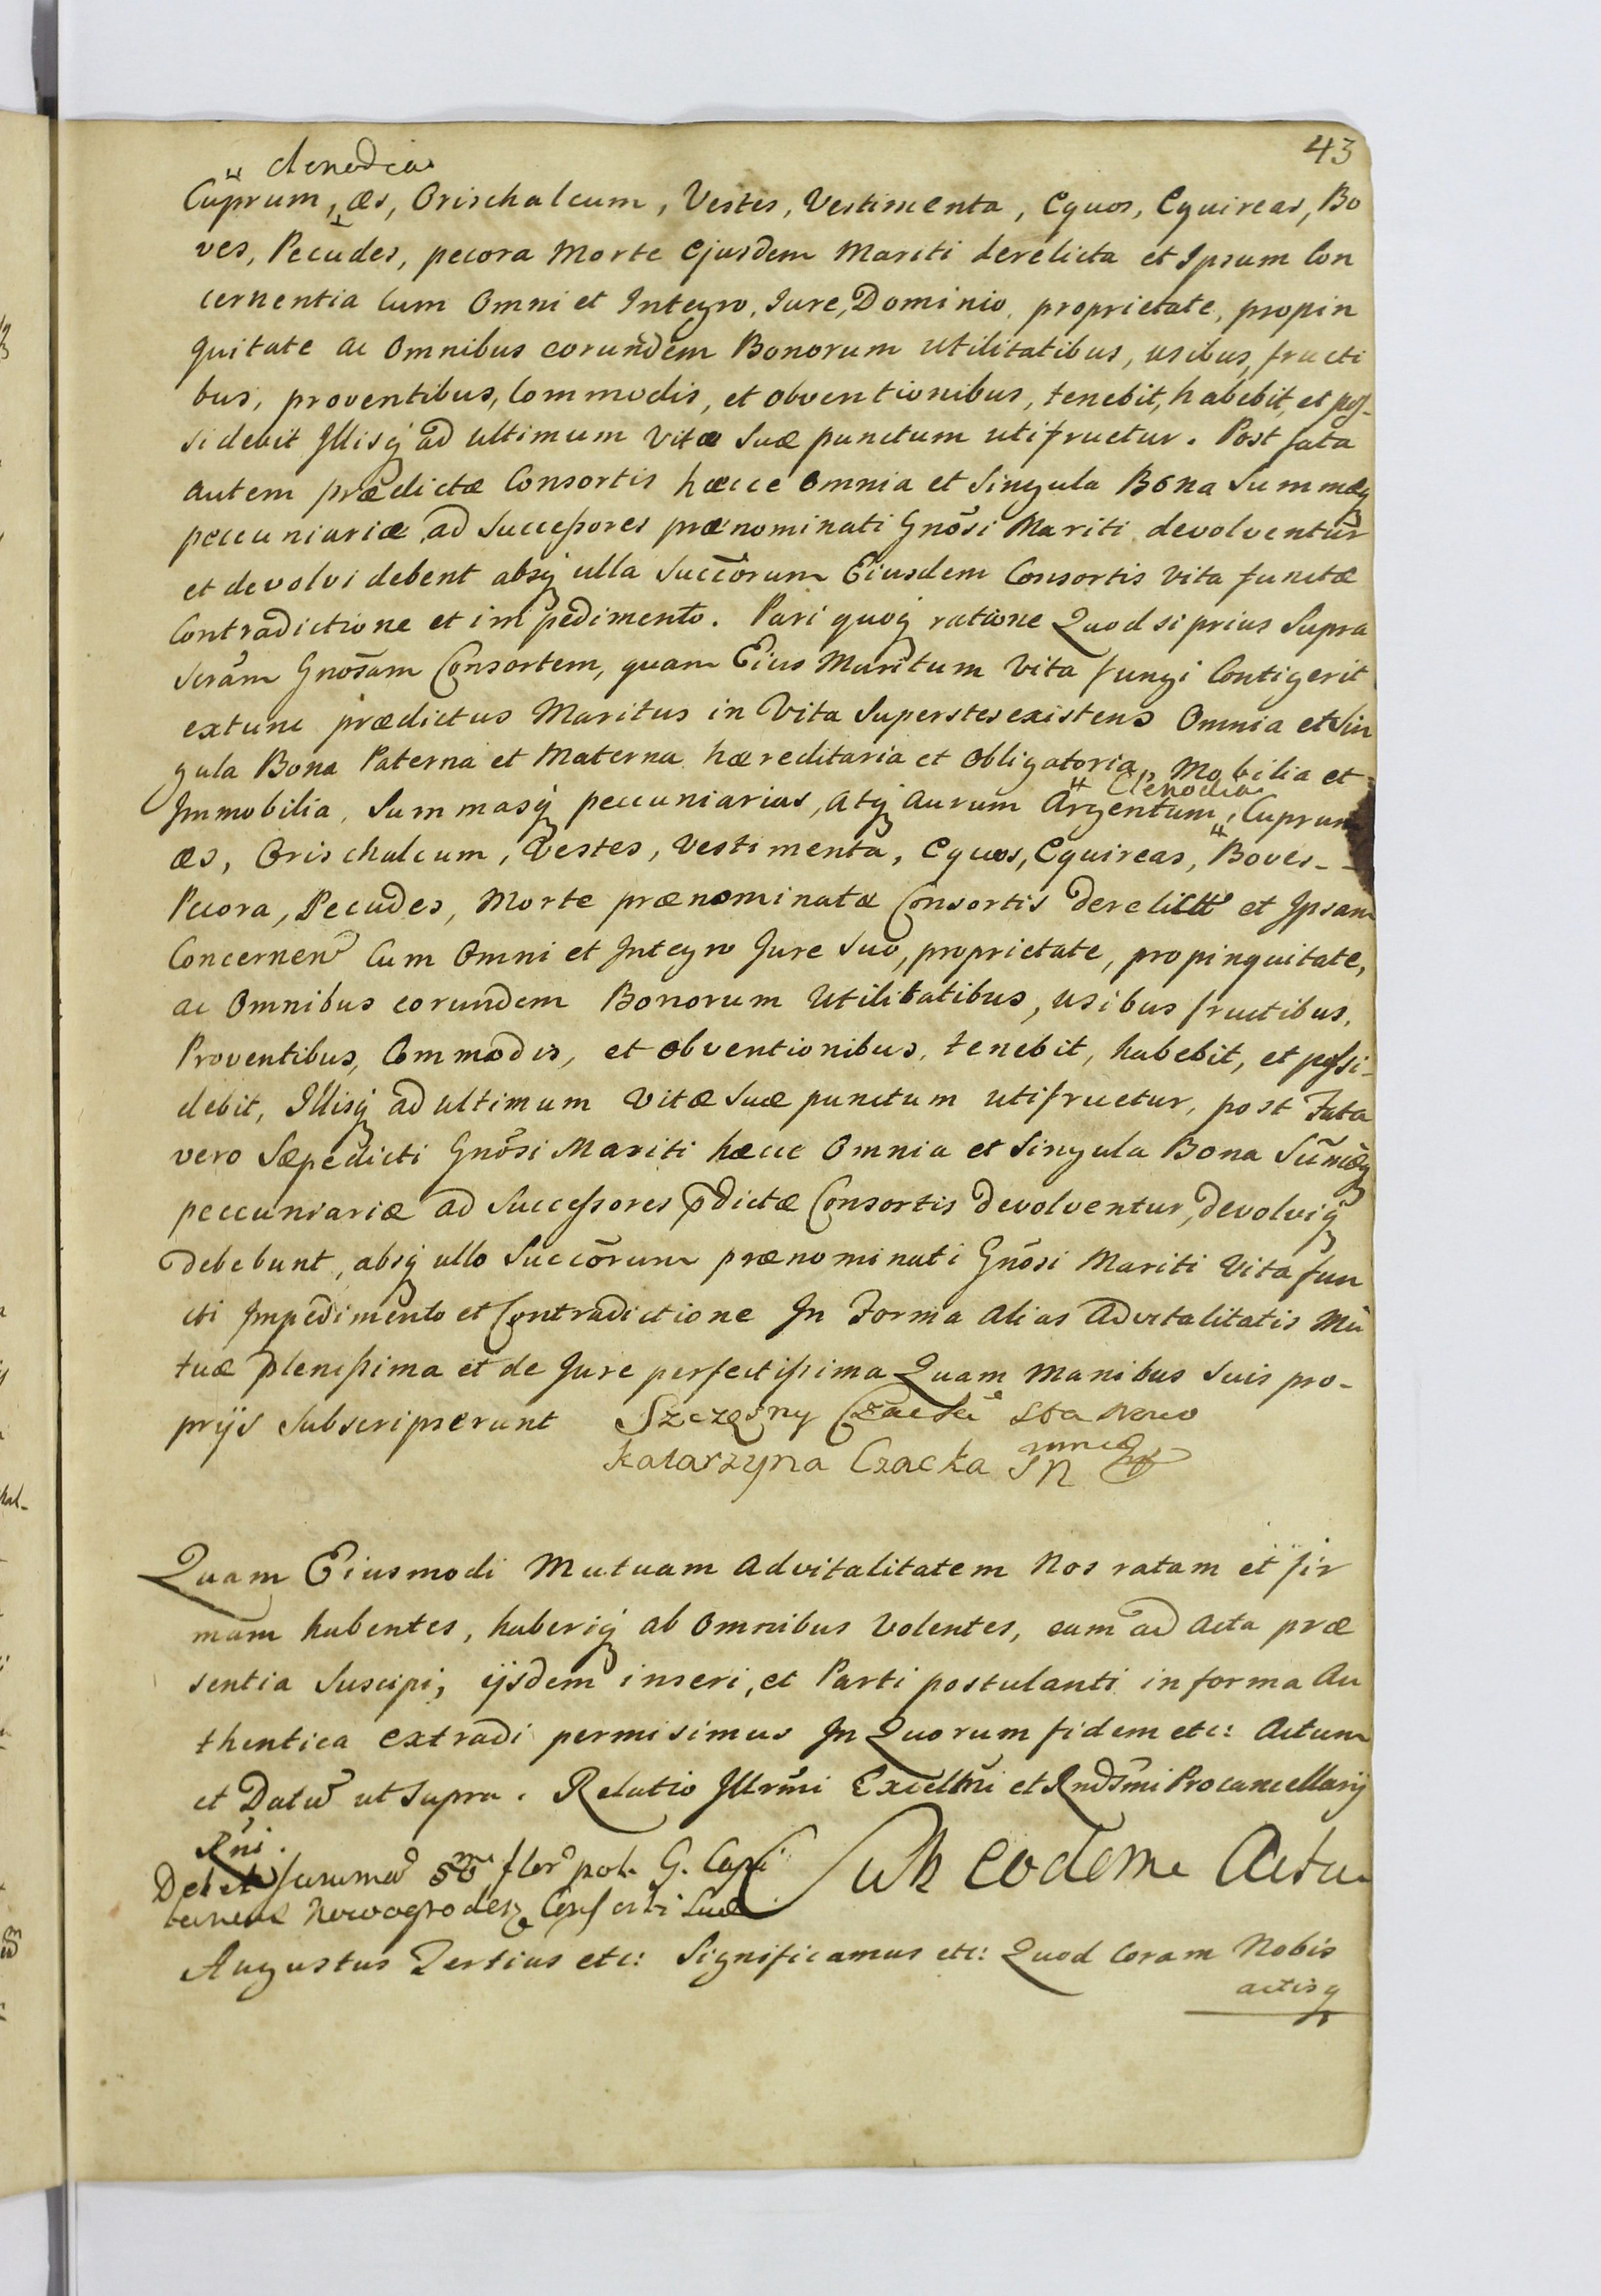 43
clenodia
Cuprum, æs, Orischalcum, Vestes, Vestimenta, Equos, Equireas, Bo
ves, Pecudes, pecora Morte Ejusdem Mariti derelicta et Ipsum Con
cernentia Cum Omni et Integro, Iure, Dominio, proprietate, propin
quitate ac Omnibus eorundem Bonorum utilitatibus, usibus, fructi
bus, proventibus, Commodis, et obventionibus, tenebit, habebit, et pos-
sidebit Illisq̃ ad ultimum vitæ suæ punctum utifruetur. Post fata
autem prædictæ Consortis hæcce Omnia et Singula Bona Summæq̃
peccuniariæ ad Successores prænominati Gnõsi Mariti devolventur
et devolvi debent absq̃ ulla Succõrum Eiusdem Consortis vita functæ
Contradictione et impedimento. Pari quoq̃ ratione Quod si prius Supra
scrãm Gnosãm Consortem, quam Eius Maritum Vita fungi Contigerit
extunc prædictus Maritus in Vita Superstes existens Omnia et Sin
gula Bona Paterna et Materna hæreditaria et obligatoria, Mobilia et
Clenodia
Immobilia, Summasq̃ peccuniarias, atq̃ aurum Argentum, Cuprum
æs, Orischalcum, Vestes, Vestimenta, Equos, Equireas, Boves--
Pecora, Pecudes, Morte prænominatæ Consortis derelicta et Ipsam
Concernen̄ Cum Omni et Integro Jure suo, proprietate, propinquitate,
ac Omnibus eorundem Bonorum Utilitatibus, usibus fructibus,
Proventibus, Commodis, et obventionibus, tenebit, habebit, et possi-
debit, Illisq̃ ad ultimum vitæ suæ punctum utifruetur, post Fata
vero Sæpedicti Gnõsi Mariti hæcce Omnia et Singula Bona Sum̃æq̃
peccuniariæ ad Successores p̄dictæ Consortis devolventur, devolviq̃
debebunt, absq̃ ullo Succõrum prænominati Gnõsi Mariti Vita fun
cti Impedimento et Contradictione In Forma alias Advitalitatis Mu
tuæ plenissima et de Jure perfectissima Quam Manibus suis pro-
prijs subscripserunt Szczęsny Czacki
Katarzyna Czacka
Quam Eiusmodi Mutuam advitalitatem Nos ratam et fir
mam habentes, haberiq̃ ab Omnibus Volentes, eam ad Acta præ
sentia Suscipi, ijsdem inseri, et Parti postulanti in forma Au
thentica extradi permisimus In Quorum fidem etc: Actum
et Datũ ut supra. Relatio Illr̃mi Excellm̃i et Rnds̃mi Procancellarij
Rñi.
Sub eodem Actu
Augustus Tertius etc: Significamus etc: Quod Coram Nobis
actisq̃